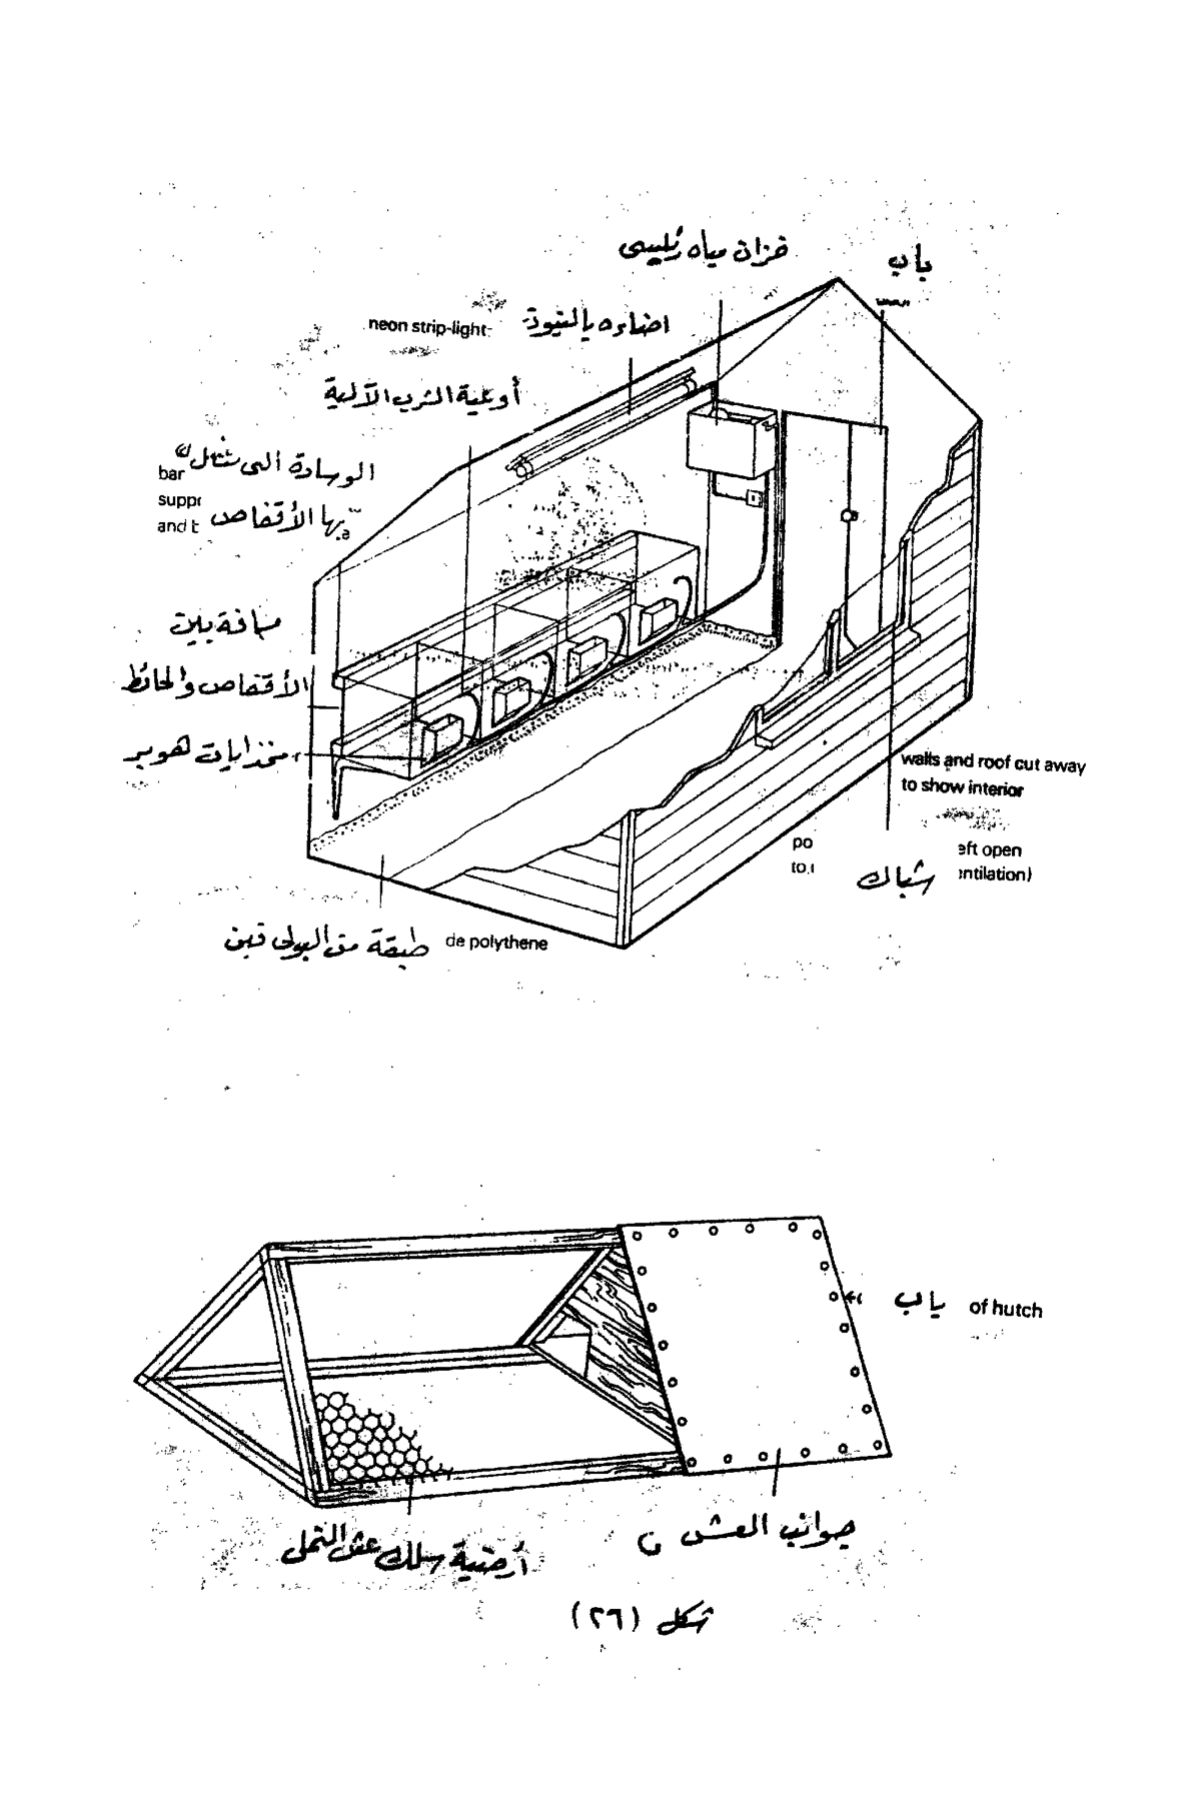 خزان مياه رئيسى
باب
neon strip-light
اضاءه بالنيون
أوعية الشرب الآلية
الوسادة التى تثقل
bar
supp
بها الأقفاص
and t
مسافة بين
الأقفاص والحائط
هوبر
walls and roof cut away
to show interior
po
eft open
to
شباك
entilation)
طبقة من البولى
de polythene
باب
of hutch
جوانب العش
أرضية سلك عش النحل
شكل (٢٦)